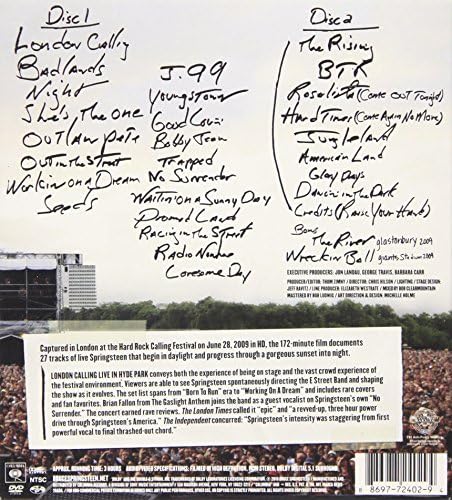 Disc 1
London Calling
Badlands
Night
She's The One
OUTlaw Pete
OUT in The Street
Workin on a Dream
Seeds
J. 99
Youngstown
Good Lovin'
Bobby Jean
Trapped
No Surrender
Waitin on a Sunny Day
Promised Land
Racing in The Street
Radio Nowhere
Lonesome Day
Disc 2
The Rising
BTR
Rosalita (Come OUT Tonight)
Hard Times (Come Again No More)
Jungleland
American Land
Glory Days
Dancin in The Dark
Credits (Raise Your Hand)
Bonus
The River glastonbury 2009
Wreckin Ball giants Stadium 2009
EXECUTIVE PRODUCERS: JON LANDAU, GEORGE TRAVIS, BARBARA CARR
PRODUCER/EDITOR: THOM ZIMNY / DIRECTOR: CHRIS HILSON / LIGHTING / STAGE DESIGN:
JEFF RAVITZ / LINE PRODUCER: ELIZABETH WESTRATE / MIXED BY BOB CLEARMOUNTAIN
MASTERED BY BOB LUDWIG / ART DIRECTION & DESIGN: MICHELLE HOLME
Captured in London at the Hard Rock Calling Festival on June 28, 2009 in HD, the 172-minute film documents
27 tracks of live Springsteen that begin in daylight and progress through a gorgeous sunset into night.
LONDON CALLING LIVE IN HYDE PARK conveys both the experience of being on stage and the vast crowd experience of
the festival environment. Viewers are able to see Springsteen spontaneously directing the E Street Band and shaping
the show as it evolves. The set list spans from "Born To Run" era to "Working On A Dream" and includes rare covers
and fan favorites. Brian Fallon from The Gaslight Anthem joins the band as a guest vocalist on Springsteen's own "No
Surrender." The concert earned rave reviews. The London Times called it "epic" and "a revved-up, three hour power
drive through Springsteen's America." The Independent concurred: "Springsteen's intensity was staggering from first
powerful vocal to final thrashed-out chord."
APPROX. RUNNING TIME: 3 HOURS AUDIO/VIDEO SPECIFICATIONS: FILMED IN HIGH DEFINITION, PCM STEREO, DOLBY DIGITAL 5.1 SURROUND
BRUCESPRINGSTEEN.NET
COLUMBIA
DVD
NTSC
8 8697-72402-9 4